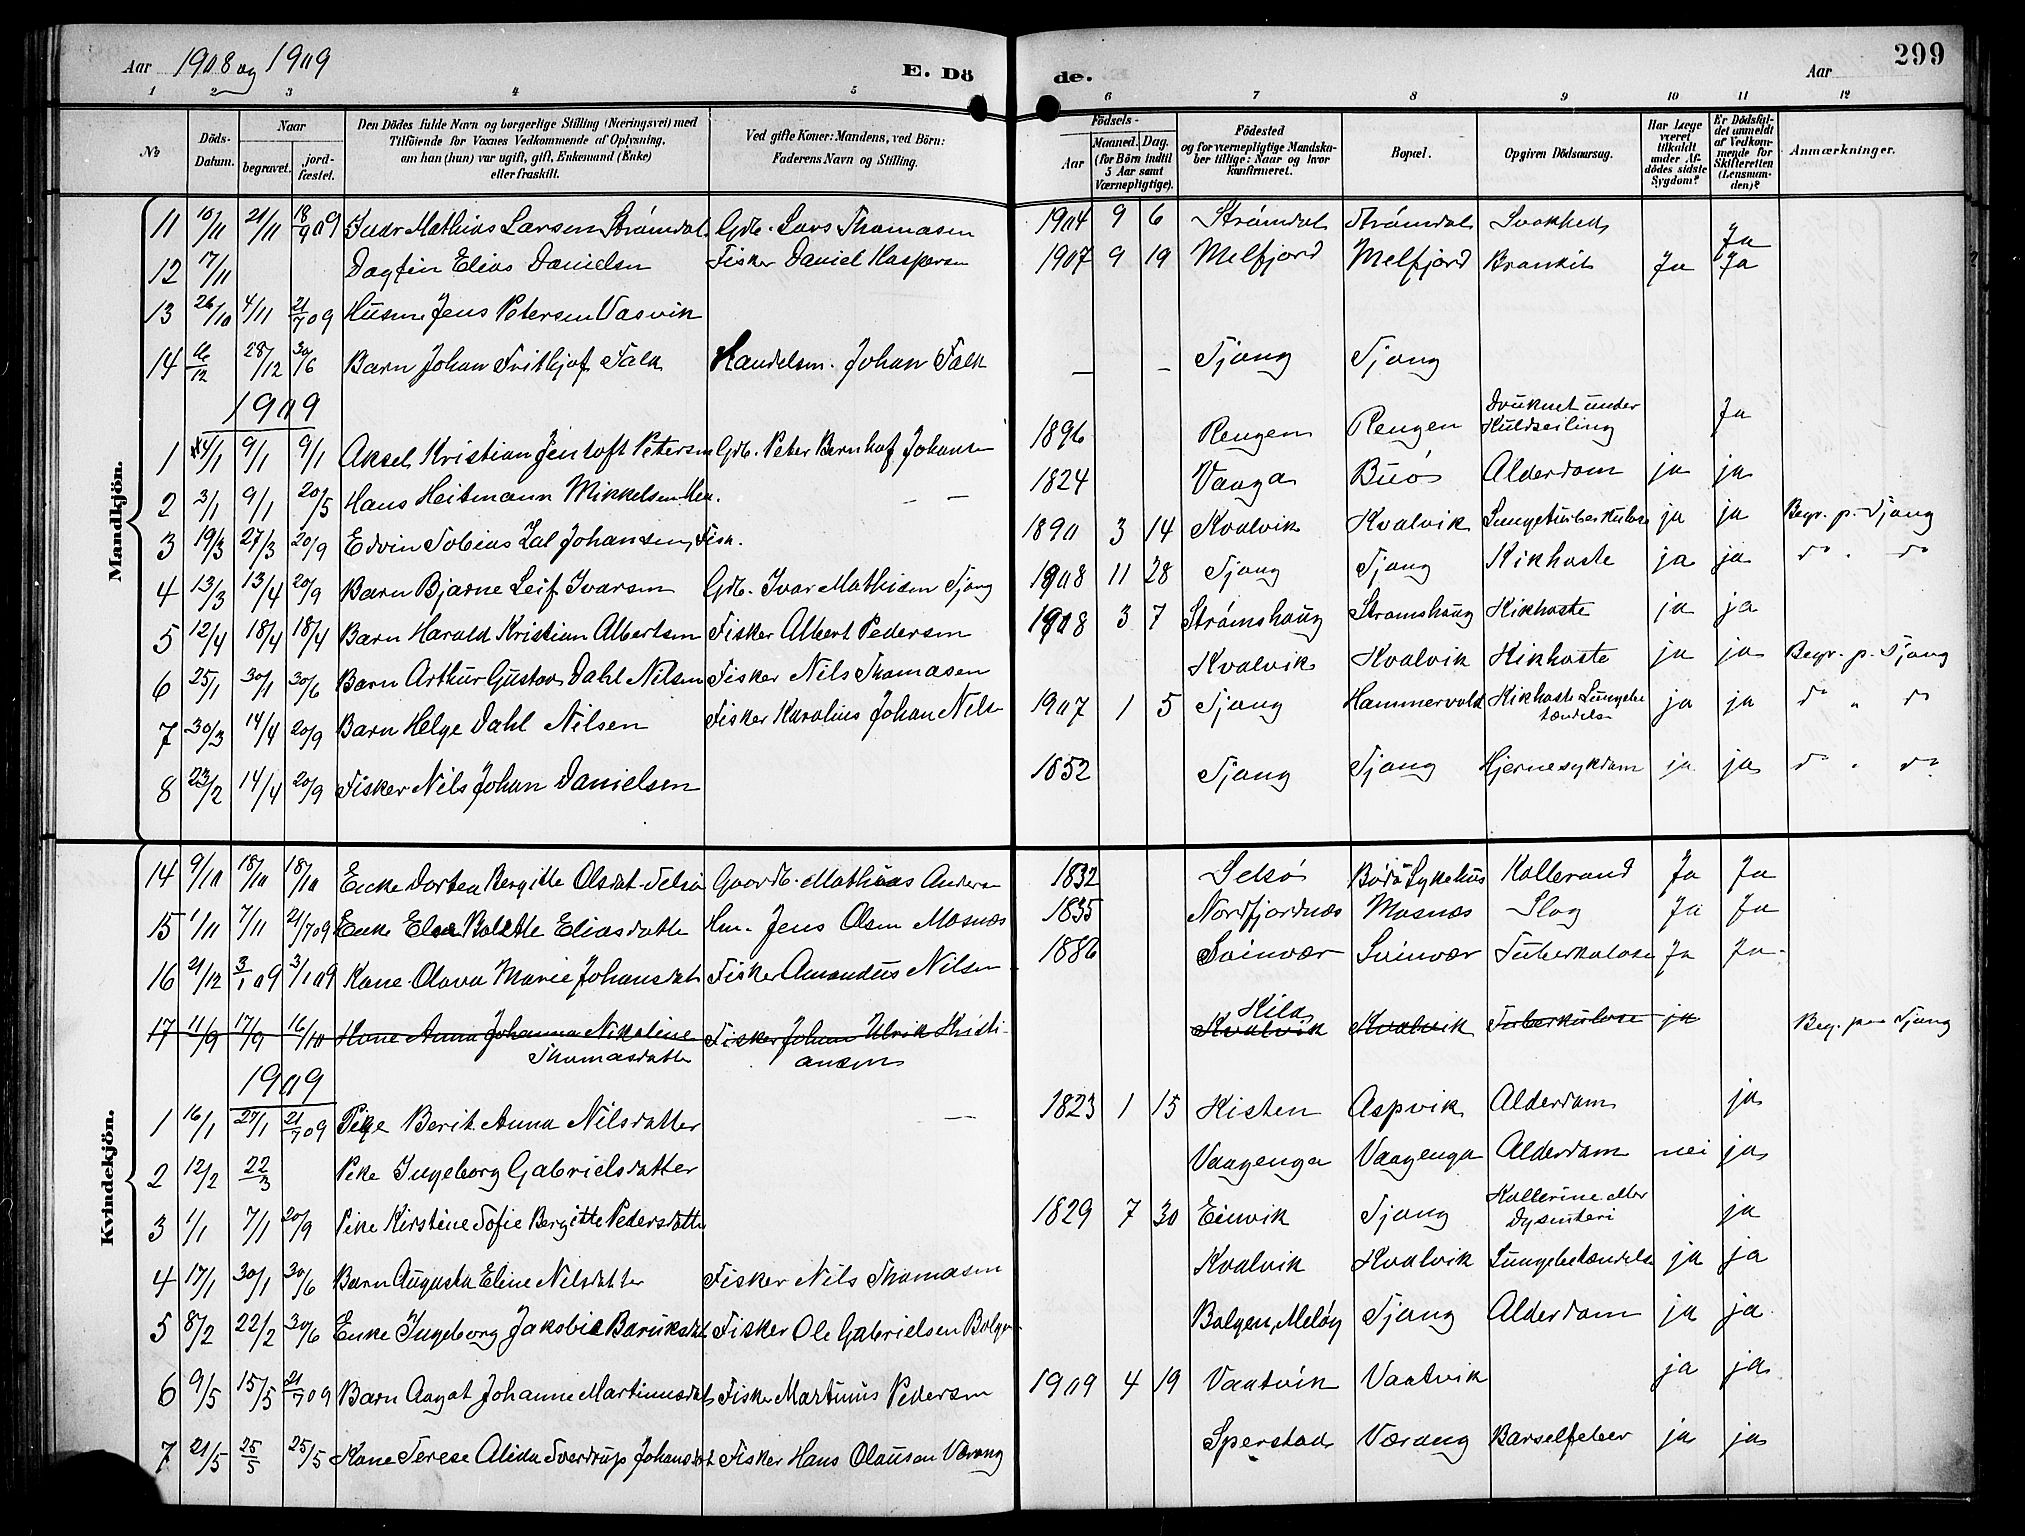 Aar 1908 og 1909
E. Dö
de.
Aar
299
1 2 3 4 5 6 7 8 9 10 11 12
№
Döds-Datum.
Naar
begravet.
jord-fæstet.
Den Dödes fulde Navn og borgerlige Stilling (Næringsvei) med
Tilföiende for Voxnes Vedkommende af Oplysning,
om han (hun) var ugift, gift, Enkemand (Enke)
eller fraskilt.
Ved gifte Koner: Mandens, ved Börn:
Faderens Navn og Stilling.
Födsels-
Aar
Maaned.
Dag.
(for Börn indtil
5 Aar samt
Værnepligtige).
Födested
og for værnepligtige Mandska-
ber tillige: Naar og hvor
konfirmeret.
Bopæl.
Opgiven Dödsaarsag.
Har Læge
været
tilkaldt
under Af-
dödes sidste
Sygdom?
Er Dödsfal-
det anmeldt
af Vedkom-
mende for
Skifteretten
(Lensman-
den)?
Anmærkninger.
Mandkjön.
11 10/11 21/11 18/9 09 Mathias Larsen Strømdal Gdb. Lars Thomasen 1904 9 6 Strømdal Strømdal Ja
12 17/11 Dagfin Elias Danielsen Fisker Daniel Kaspersen 1907 9 19 Melfjord Melfjord Bronkit Ja Ja
13 26/10 4/11 21/7 09 Husm Jens Petersen Vasvik
14 /12 28/12 30/6 Barn Johan Frithjof Falk Handelsm. Johan Falk — — Tjong Tjong
1909
1 4/1 9/1 9/1 Aksel Kristian Jentoft Petersen Gdb. Peter Bernhof Johansen 1896 Rengen Rengen Druknet under Kuldseiling Ja
2 3/1 9/1 20/5 Hans Heitmann Mikkelsen — — 1824 Vaaga Buö Alderdom ja ja
3 19/3 27/3 20/9 Edvin Tobias Johansen, Fisk. 1890 3 14 Kvalvik Kvalvik Lungetuberkulose ja ja Begr. p. Tjong
4 13/3 13/4 20/9 Barn Bjarne Leif Ivarsen Gdb. Ivar Mathisen Tjong 1908 11 28 Tjong Tjong Kikhoste ja ja do . do
5 12/4 18/4 18/4 Barn Harald Kristian Albertsen Fisker Albert Pedersen 1908 3 7 Strømshaug Strømshaug Kikhoste ja ja
6 25/1 30/1 30/6 Barn Arthur Gustav Dahl Nilsen Fisker Nils Thomasen Kvalvik Kvalvik Kikhoste ja ja Begr. p. Tjong
7 30/3 14/4 20/9 Barn Helge Dahl Nilsen Fisker Karolius Johan Nilsen 1907 1 5 Tjong Hammervold Kikhoste Lungebetændelse ja ja do " do
8 23/2 14/4 20/9 Fisker Nils Johan Danielsen 1852 Tjong Tjong Hjernesykdom ja ja do . do
Kvindekjön.
14 9/10 18/10 18/10 Enke Dortea Bergitte Olsdat Selsö Gaardb. Mathias Andersen 1832 Selsö Bodö Sykehus Ja Ja
15 1/11 7/11 21/7 09 Enke Else Bolette Eliasdatter Hm. Jens Olsen Mosnæs 1835 Nordfjordnæs Mosnæs Slag Ja Ja
16 21/12 3/1 09 3/1 09 Kone Olava Marie Johansdat Fisker Amandus Nilsen 1886 Svinvær Svinvær Tuberkulose Ja Ja
17 11/9 17/9 16/10 Kone Anna Johanna Nikoline Thomasdatter Fisker Johan Ulrik Kristiansen Kila Kvalvik Kvalvik Tuberkulose ja Begr. paa Tjong
1909
1 16/1 27/1 21/7 09 Pige Berit Anna Nilsdatter — 1823 1 15 Kisten Aspvik Alderdom ja
2 12/2 22/3 Pike Ingeborg Gabrielsdatter Vaagenga Vaagenga Alderdom nei ja
3 1/1 7/1 20/9 Pike Kirstine Sofie Bergitte Pedersdatter 1829 7 30 Einvik Tjong Kollerine eller Dysenteri ja
4 17/1 30/1 30/6 Barn Augusta Eline Nilsdatter Fisker Nils Thomasen Kvalvik Kvalvik Lungebetændelse ja ja
5 8/2 22/2 30/6 Enke Ingeborg Jakobie Baruksdat Fisker Ole Gabrielsen Bolgen Bolgen, Meløy Tjong Alderdom ja ja
6 9/5 15/5 21/7 09 Barn Aagot Johanne Martinusdat Fisker Martinus Pedersen 1909 4 19 Vaatvik Vaatvik ja ja
7 21/5 25/5 25/5 Kone Terese Alida Sverdrup Johansdat Fisker Hans Olausen Værang Sperstad Værang Barselfeber ja ja